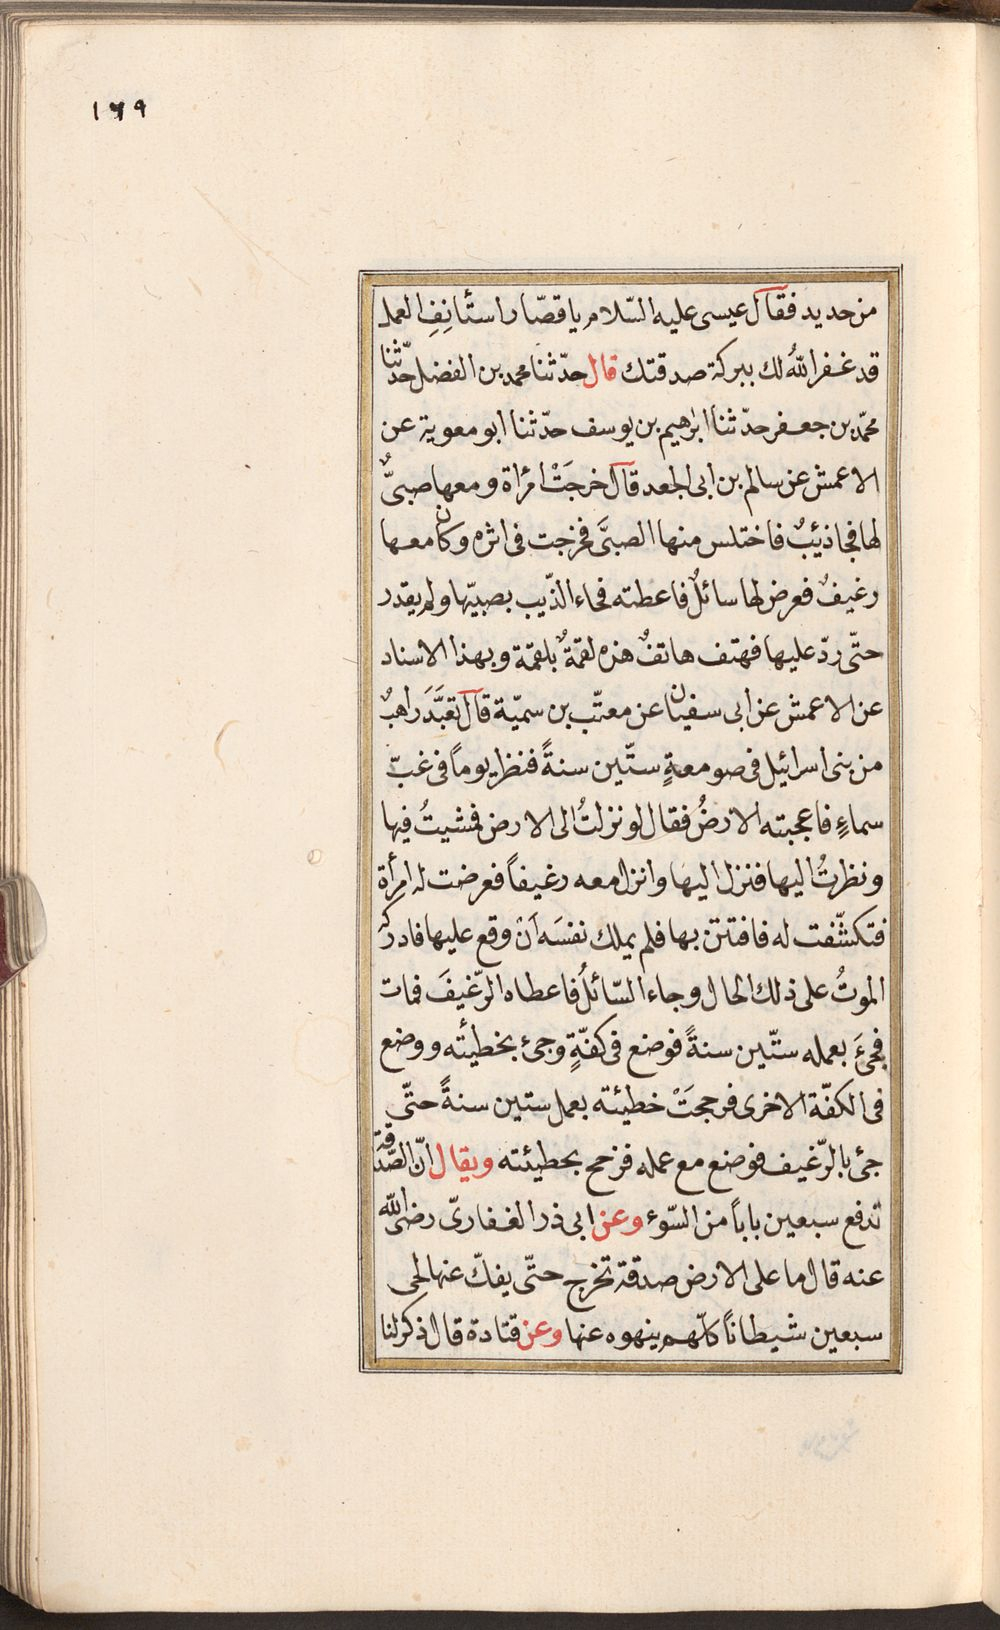 ١٦٩
من حديد فقال عيسى عليه السّلام يا قصّار استأنِفِ العمل
قد غفر اللهُ لك ببركة صدقتك قال حدّثنا محمد بن الفضل حدّثنا
محمّد بن جعفر حدّثنا ابرٰهيم بن يوسف حدّثنا ابو معوية عن
الاعمش عن سالم بن ابى الجعد قال خرجَتْ امرْاة ومعها صبىٌّ
لها فجا ذئبٌ فاختلس منها الصبىَّ فخرجت فى اثره وكان معها
رغيفٌ فعرض لها سائلٌ فاعطته فجاء الذّيب بصبيّها ولم يقدر
حتّى ردّ عليها فهتف هاتفٌ هذه لقمةٌ بلقمّة وبهذا الاسناد
عن الاعمش عن ابى سفيان عن معتّب بن سميّة قال تعبَّدَ راهبٌ
من بنى اسرائيل فى صومعةٍ ستّين سنةً فنظر يوماً فى غبّ
سماءٍ فاعجبته الارضُ فقال لو نزلتُ الى الارض فمشيتُ فيها
ونظرتُ اليها فنزل اليها وانزل معه رغيفاً فعرضت له امرأة
فتكشّفت له فافتتن بها فلم يملك نفسَه اَنْ وقع عليها فادركه
الموتُ على ذلك الحال وجاء السّائلُ فاعطاه الرّغيفَ فمات
فجئَ بعمله ستّين سنةً فوضع فى كفّةٍ وجئ بخطيئته ووضع
فى الكفّة الاخرى فرجحَتْ خطيئته بعمل ستين سنةً حتّى
جئ بالرّغيف فوضع مع عمله فرجح بخطيئته ويقال انّ الصّدقة
تدفع سبعين باباً من السّوء وعن ابى ذر الغفارىّ رضى الله
عنه قال ما على الارض صدقة تخرج حتّى يفكّ عنها لحى
سبعين شيطاناً كلّهم ينهوه عنها وعن قتادة قال ذكر لنا